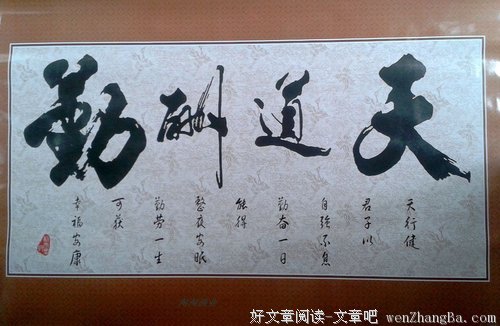 天道酬勤
天行健
君子以
自强不息
勤奋一日
能得
整夜安眠
勤劳一生
可获
幸福安康
好文章阅读-文章吧 wenZhangBa.Com